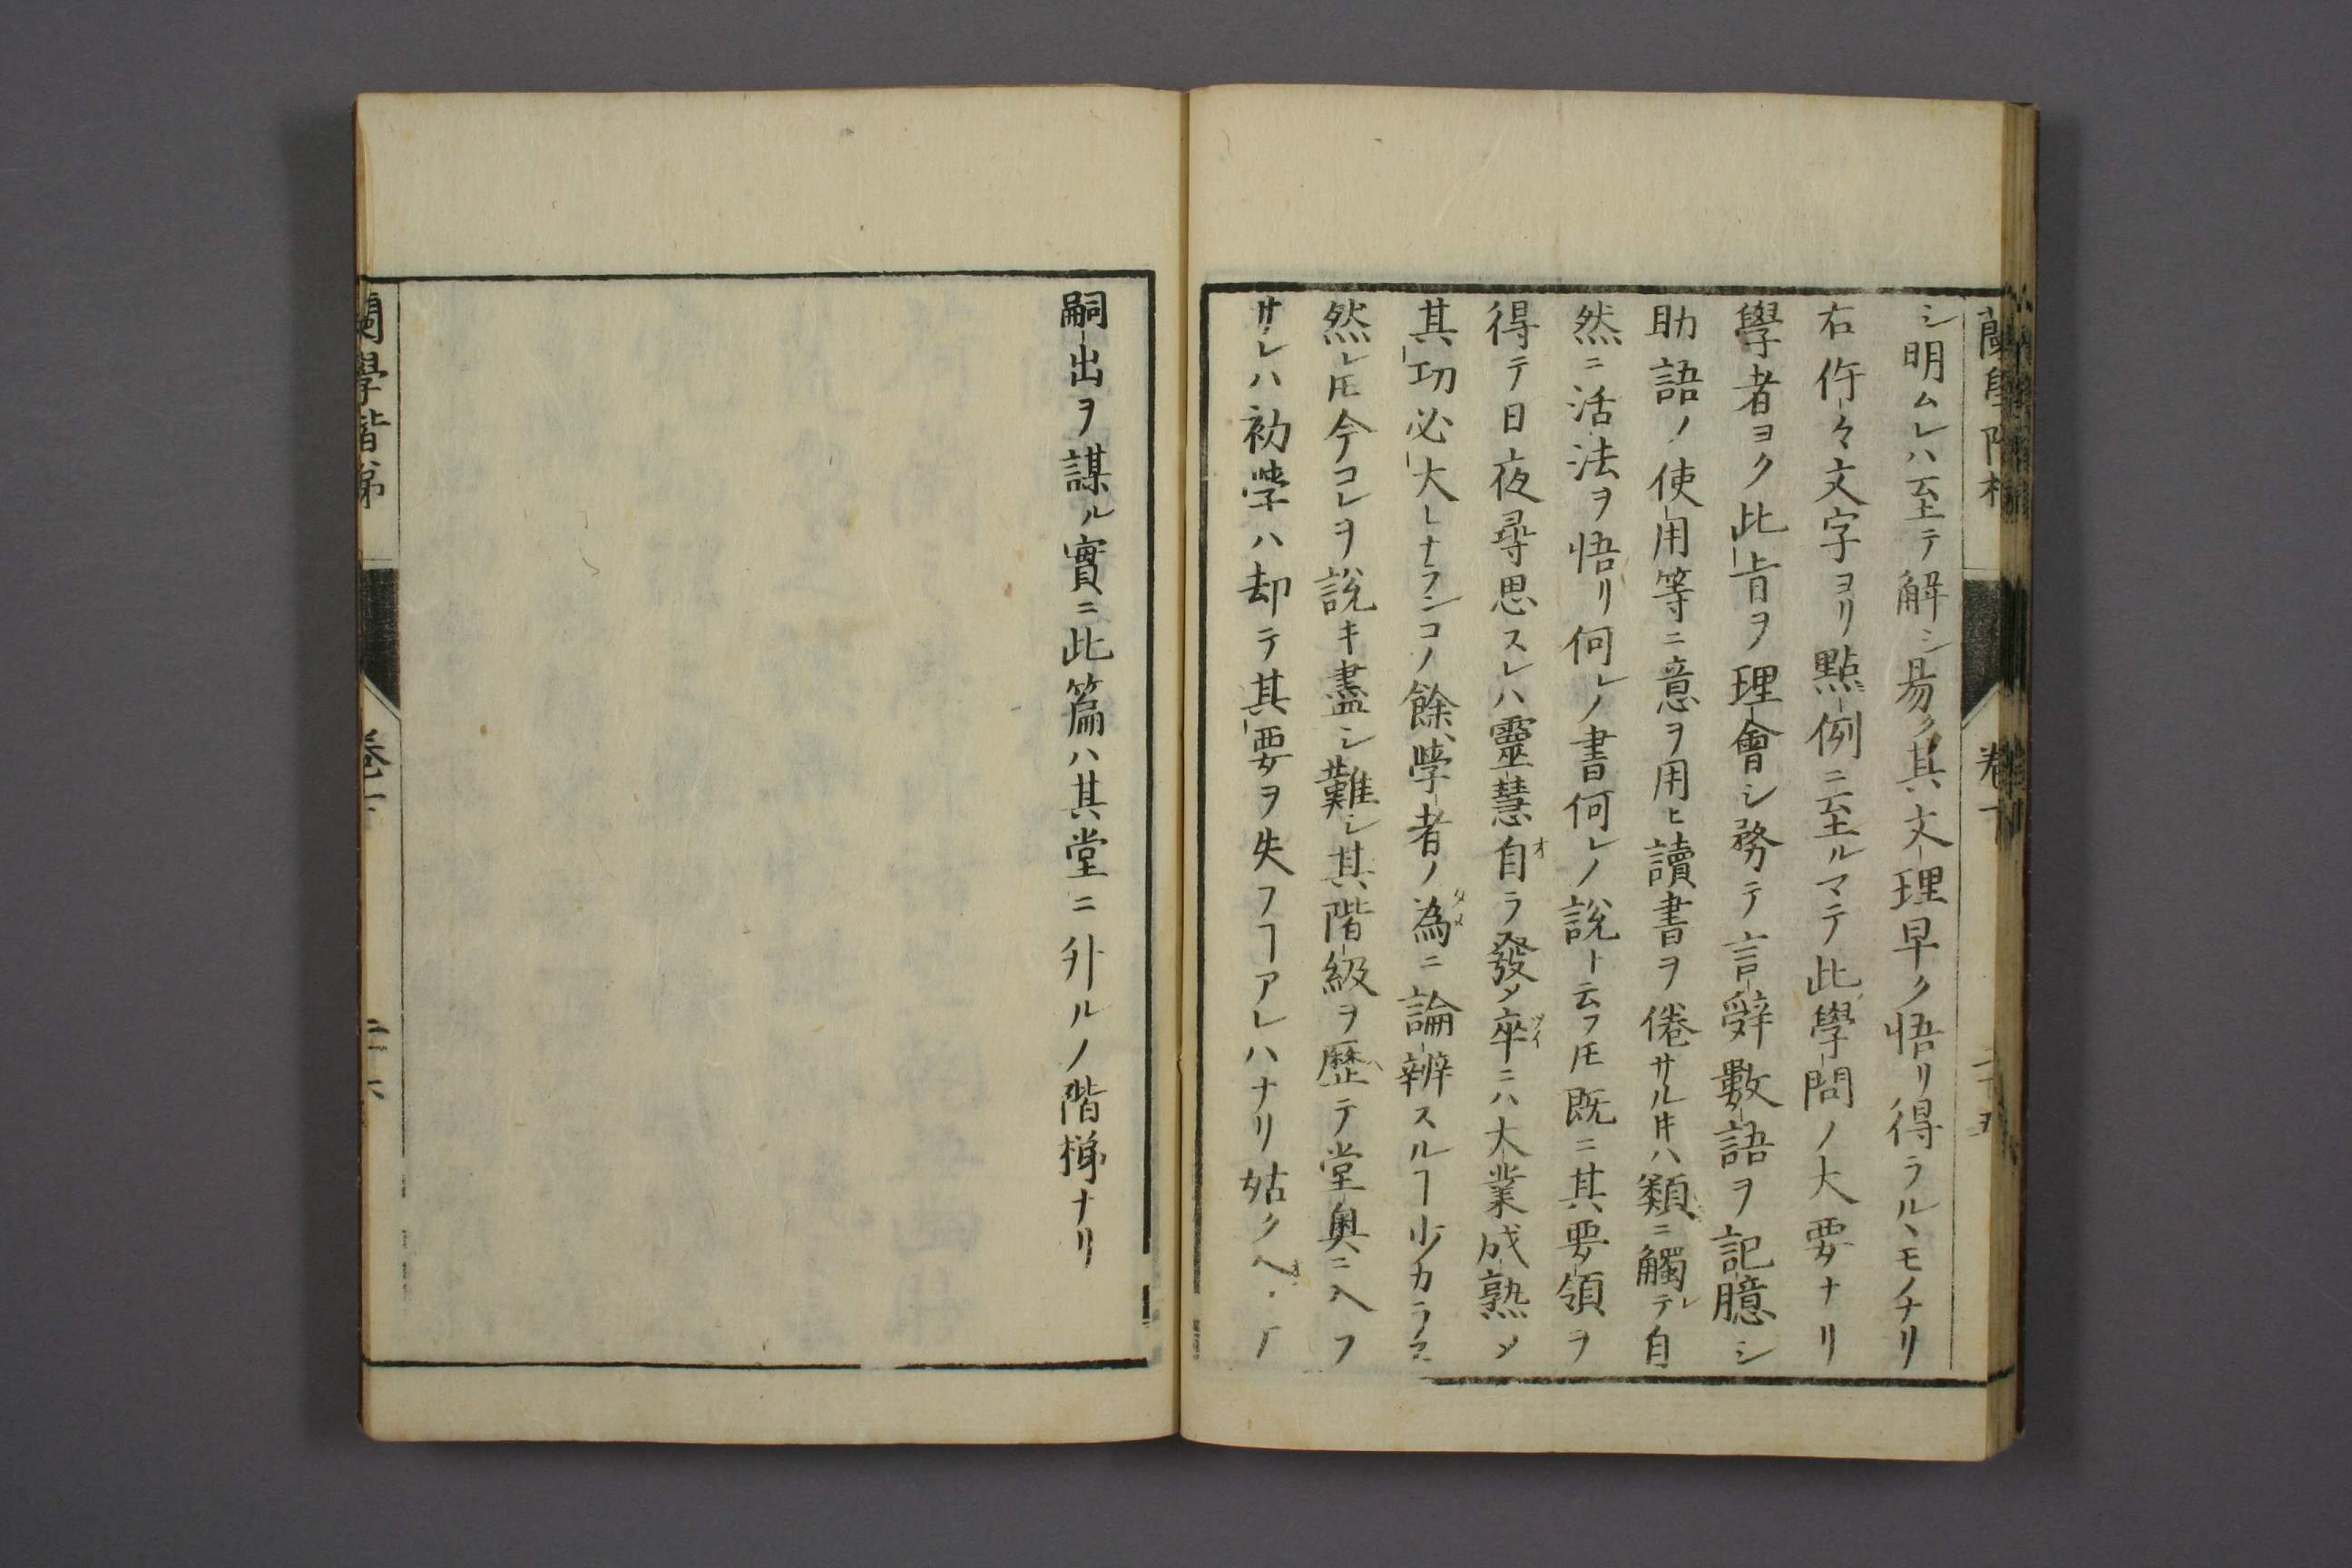 シ明ムレハ至テ解シ易ク其文理早ク悟リ得ラルヽモノナリ
右件々文字ヨリ點例ニ至ルマテ此學問ノ大要ナリ
學者ヨク此旨ヲ理會シ務テ言辭數語ヲ記臆シ
助語ノ使用等ニ意ヲ用ヒ讀書ヲ倦サルﾄｷハ類ニ觸レテ自
然ニ活法ヲ悟リ何レノ書何レノ説ト云フ𪜈既ニ其要領ヲ
得テ日夜尋思スレハ靈慧自オラ發メ卒ツイニハ大業成熟メ
其功必大レナランコノ餘學者ノ為タメニ論辨スルヿ少カラス
然レ𪜈今コレヲ説キ盡シ難シ其階級ヲ歴ヘテ堂奥ニ入フ
サレハ初學ハ却テ其要ヲ失フヿアレハナリ姑ク
嗣出ヲ謀ル實ニ此篇ハ其堂ニ升ルノ階梯ナリ
蘭學階梯
卷下
二十六